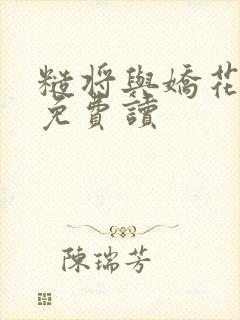 糙將與嬌花
免費讀
陳瑞芳